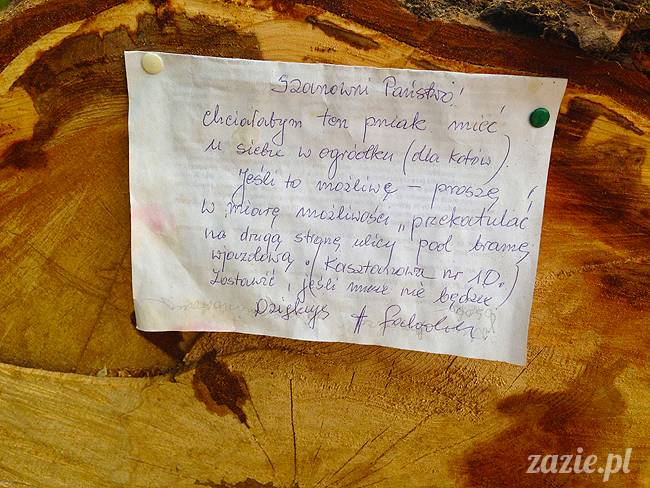 Szanowni Państwo!
chciałabym ten pniak mieć
u siebie w ogródku (dla kotów).
Jeśli to możliwę – proszę,
w miarę możliwości „przekatulać"
na drugą stronę ulicy pod bramę
wjazdową. (Kasztanowa nr 10.
Zostawić, jeśli mnie nie będzie)
Dziękuję
zazie.pl